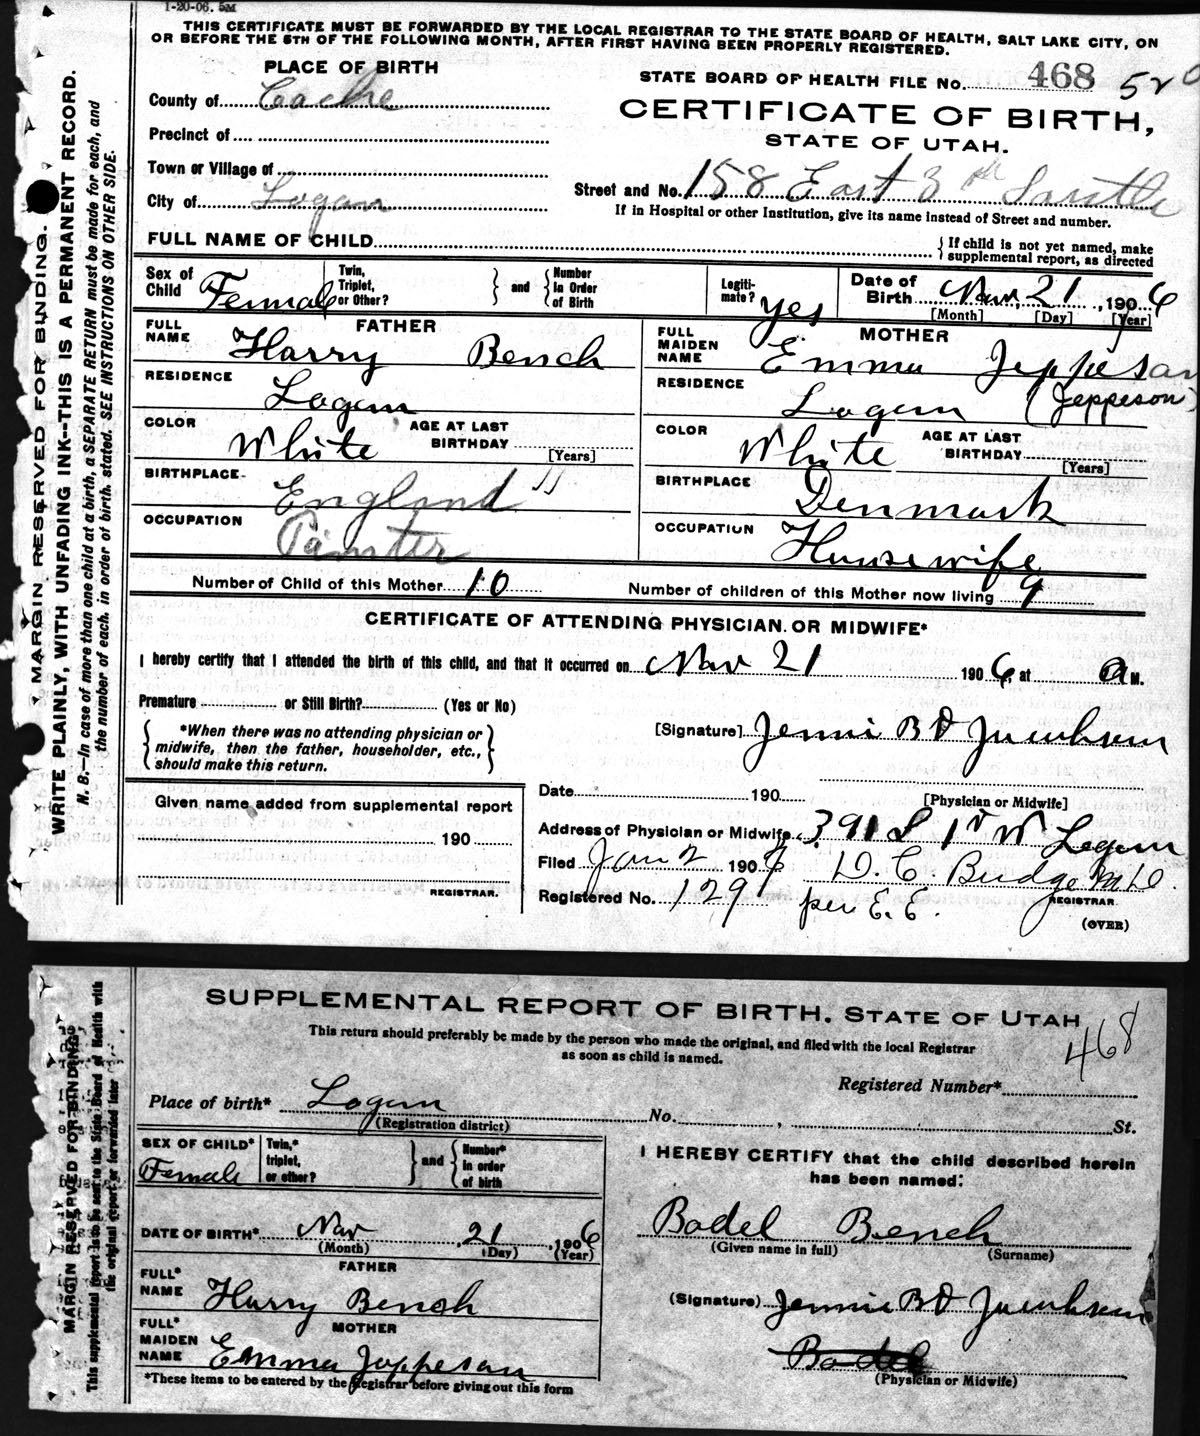 1-20-06. 5M
THIS CERTIFICATE MUST BE FORWARDED BY THE LOCAL REGISTRAR TO THE STATE BOARD OF HEALTH, SALT LAKE CITY, ON
OR BEFORE THE 5TH OF THE FOLLOWING MONTH, AFTER FIRST HAVING BEEN PROPERLY REGISTERED.
MARGIN RESERVED FOR BINDING.
WRITE PLAINLY, WITH UNFADING INK--THIS IS A PERMANENT RECORD.
N. B.—In case of more than one child at a birth, a SEPARATE RETURN must be made for each, and
the number of each, in order of birth, stated. SEE INSTRUCTIONS ON OTHER SIDE.
PLACE OF BIRTH
County of Cache
Precinct of
Town or Village of
City of Logan
STATE BOARD OF HEALTH FILE No. 468 520
CERTIFICATE OF BIRTH,
STATE OF UTAH.
Street and No. 158 East 3rd South
If in Hospital or other Institution, give its name instead of Street and number.
FULL NAME OF CHILD
{ If child is not yet named, make
supplemental report, as directed
Sex of Child Female
Twin, Triplet, or Other? } and { Number in Order of Birth
Legitimate? yes
Date of Birth Nov, 21, 1906
[Month] [Day] [Year]
FATHER
FULL NAME Harry Bench
RESIDENCE Logan
COLOR White
AGE AT LAST BIRTHDAY [Years]
BIRTHPLACE England "
OCCUPATION Painter
MOTHER
FULL MAIDEN NAME Emma Jeppesan
RESIDENCE Logan (Jeppeson)
COLOR White
AGE AT LAST BIRTHDAY [Years]
BIRTHPLACE Denmark
OCCUPATION Housewife
Number of Child of this Mother 10 Number of children of this Mother now living 9
CERTIFICATE OF ATTENDING PHYSICIAN OR MIDWIFE*
I hereby certify that I attended the birth of this child, and that it occurred on Nov 21 1906, at a M.
Premature or Still Birth? (Yes or No)
{ *When there was no attending physician or
midwife, then the father, householder, etc.,
should make this return. }
[Signature] Jennie B D Jacobsen
Date 190
[Physician or Midwife]
Given name added from supplemental report
190
REGISTRAR.
Address of Physician or Midwife 391 S 1st W Logan
Filed Jan 2 1907 D. C. Budge M.D.
Registered No. 129 per E. E. REGISTRAR
(OVER)
SUPPLEMENTAL REPORT OF BIRTH. STATE OF UTAH
This return should preferably be made by the person who made the original, and filed with the local Registrar
as soon as child is named.
468
MARGIN RESERVED FOR BINDING
This supplemental report is to be sent to the State Board of Health with
the original report or forwarded later
Registered Number*
Place of birth* Logan No. , St.
(Registration district)
SEX OF CHILD* Female
Twin,* triplet, or other? } and { Number* in order of birth
DATE OF BIRTH* Nov 21, 1906
(Month) (Day) (Year)
FATHER
FULL* NAME Harry Bench
MOTHER
FULL* MAIDEN NAME Emma Jeppesan
*These items to be entered by the Registrar before giving out this form
I HEREBY CERTIFY that the child described herein
has been named:
Bodel Bench
(Given name in full) (Surname)
(Signature) Jennie B D Jacobsen
Bodel
(Physician or Midwife)